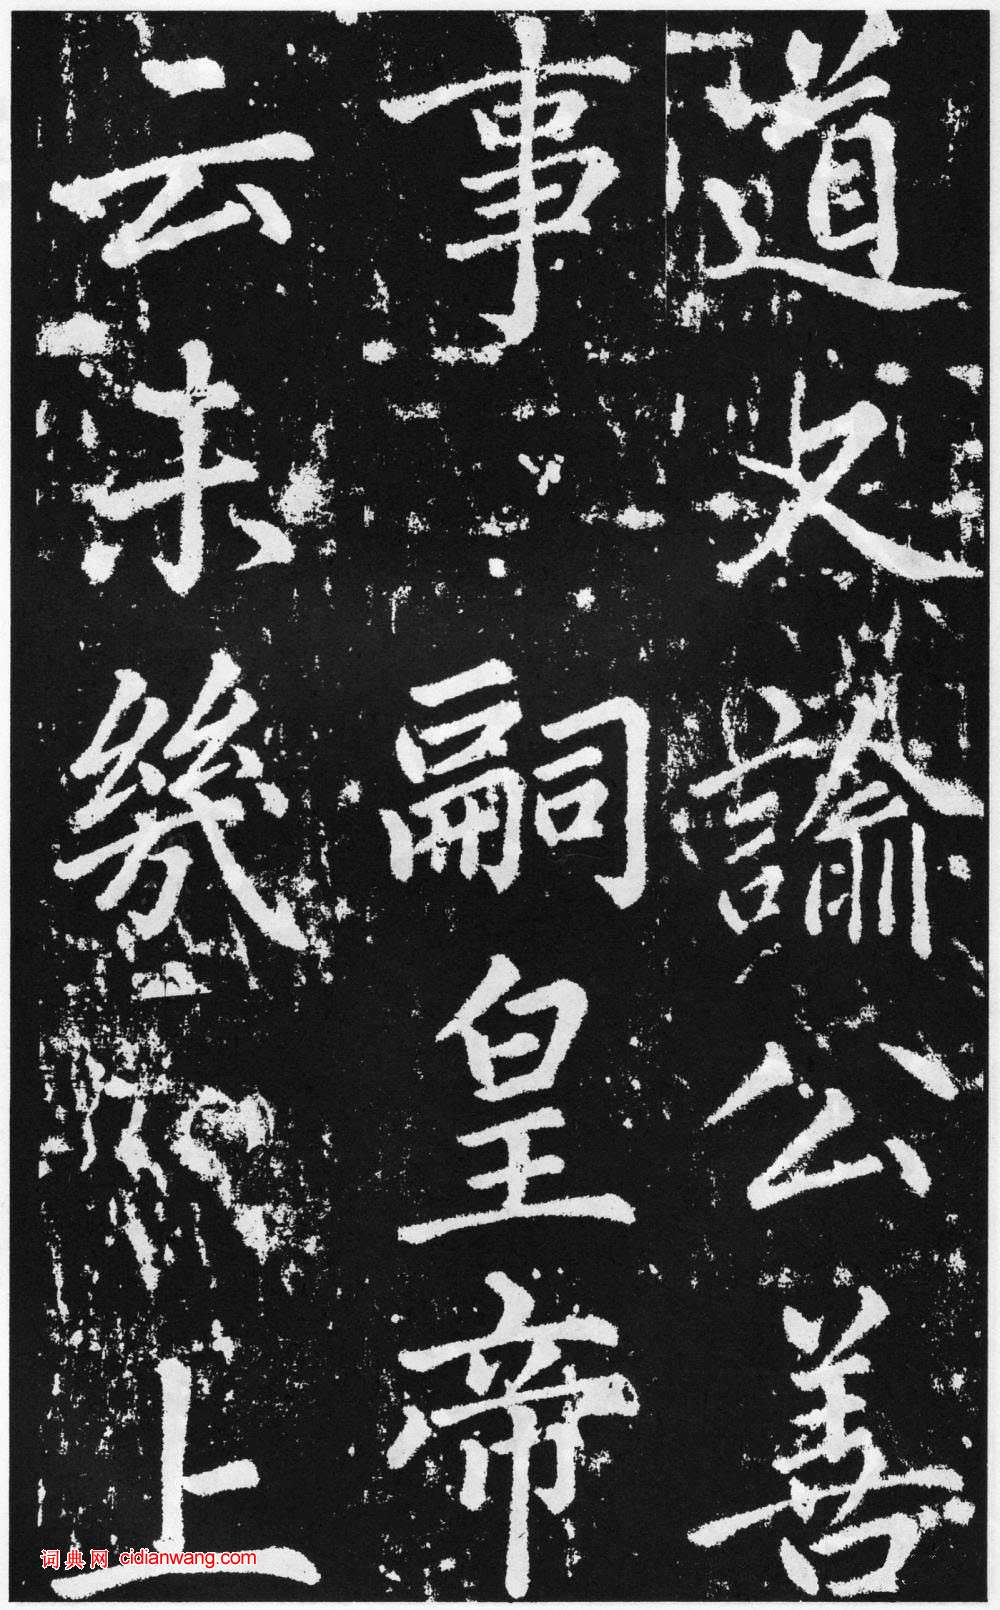 道又諭公善
事嗣皇帝
云未幾上
词典网 cidianwang.com